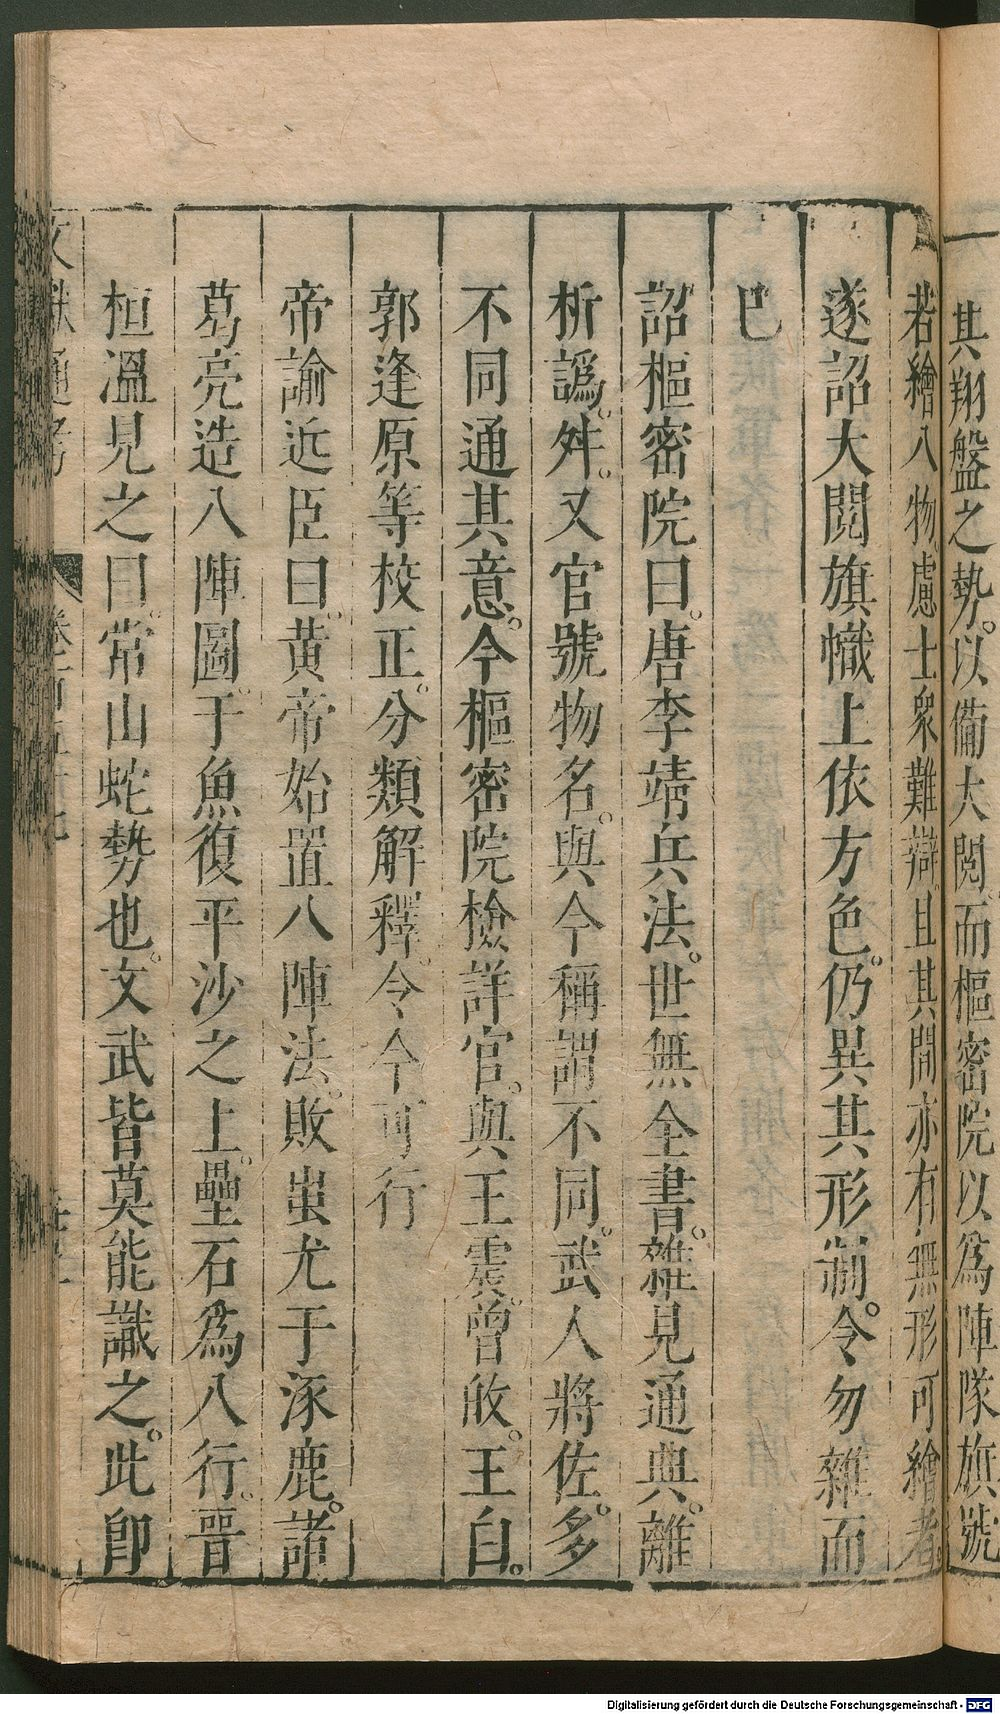 其翔盤之勢。以備大閱。而樞密院以爲陣隊旗號
若繪八物。慮士衆難辯。且其間亦有無形可繪者。
遂詔大閱旗幟上依方色。仍異其形制。令勿雜而
巳
詔樞密院曰。唐李靖兵法。世無全書。雜見通典。離
析譌舛。又官號物名。與今稱謂不同。武人將佐。多
不同通其意。今樞密院檢詳官。與王震。曾旼。王白。
郭逢原等校正。分類解釋。令今可行
帝諭近臣曰。黃帝始置八陣法。敗蚩尤于涿鹿。諸
葛亮造八陣圖。于魚復平沙之上。壘石爲八行。晉
桓溫見之曰。常山蛇勢也。文武皆莫能識之。此卽
文獻通考 卷一百五十七
Digitalisierung gefördert durch die Deutsche Forschungsgemeinschaft - DFG